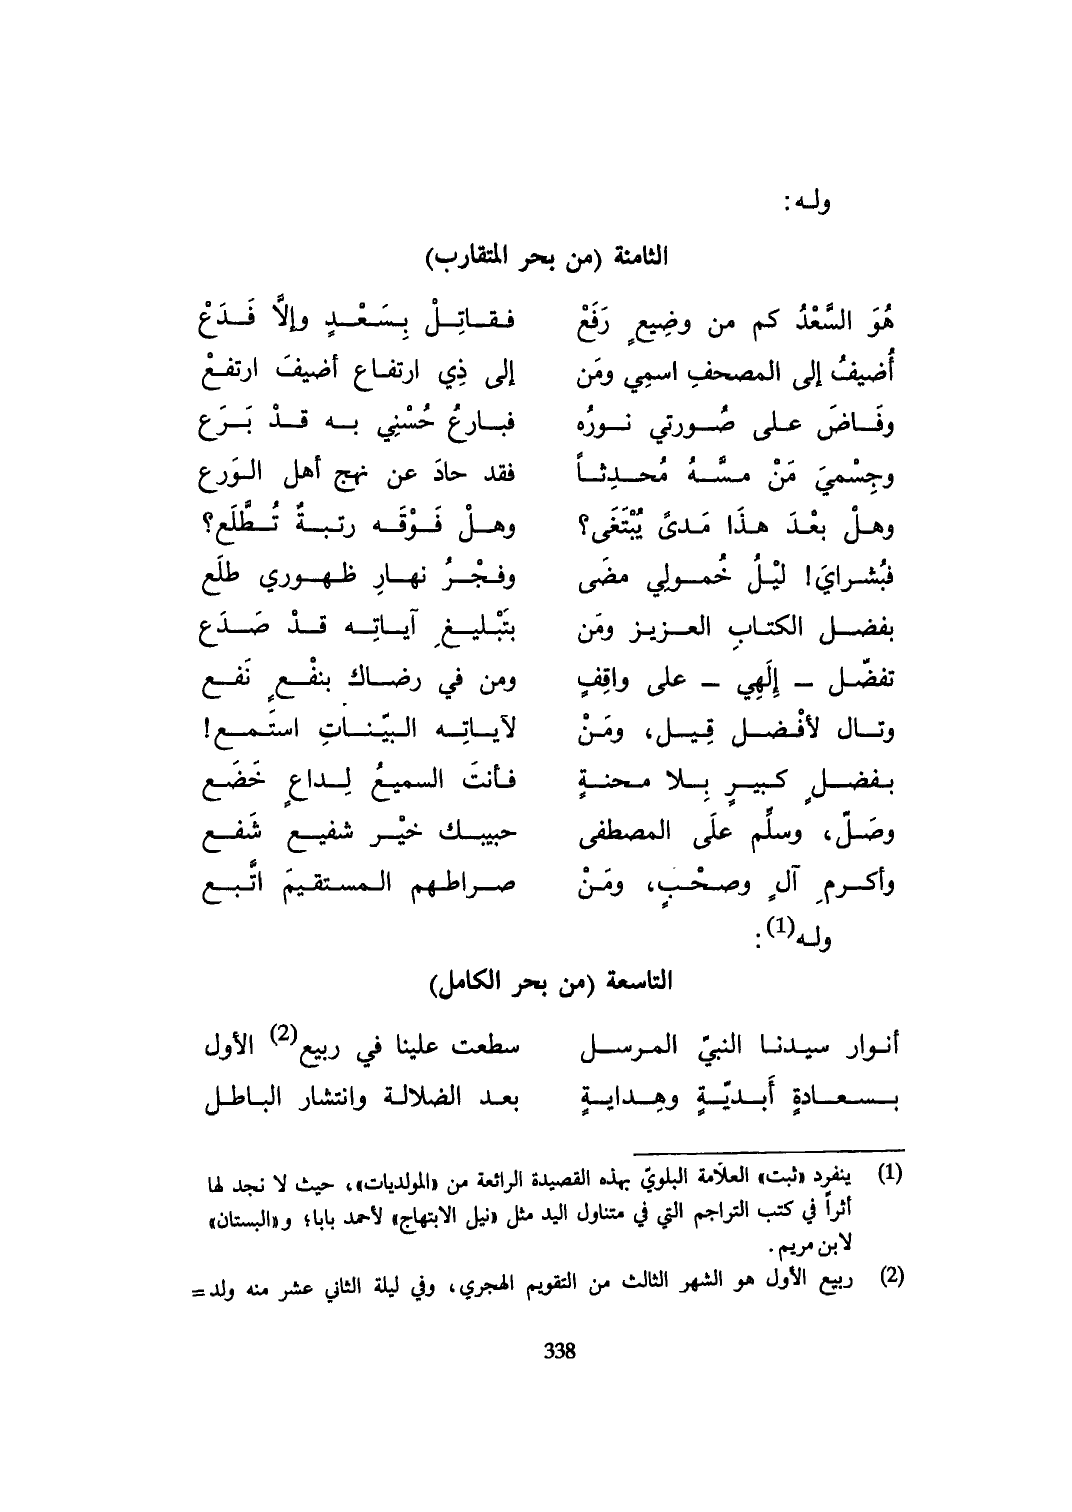 ولـه :
الثامنة (من بحر المتقارب)
هُوَ السَّعْدُ كم من وضِيعٍ رَفَعْ فقاتِلْ بِسَعْدٍ وإلاَّ فَدَعْ
أُضيفُ إلى المصحفِ اسمِي ومَن إلى ذِي ارتفاع أضيفَ ارتفعْ
وفَاضَ على صُورتي نورُه فبارعُ حُسْنِي به قدْ بَرَع
وجِسْميَ مَنْ مسَّهُ مُحدِثاً فقد حادَ عن نهج أهل الوَرع
وهلْ بعْدَ هذَا مَدىً يُبْتَغَى؟ وهلْ فَوْقَه رتبةٌ تُطَّلَع؟
فبُشرايَ! ليْلُ خُمولِي مضَى وفجْرُ نهارِ ظهوري طلَع
بفضل الكتابِ العزيز ومَن بتَبْليغِ آياتِه قدْ صَدَع
تفضّل – إلَهِي – على واقِفٍ ومن في رضاك بنفْعٍ نَفع
وتال لأفْضل قِيل، ومَنْ لآياتِه البيّناتِ استَمع!
بفضلٍ كبيرٍ بِلا محنةٍ فأنتَ السميعُ لِداعٍ خَضَع
وصَلّ، وسلِّم علَى المصطفى حبيبك خيْر شفيع شَفع
وأكرمِ آلٍ وصحْبٍ، ومَنْ صراطهم المستقيمَ اتَّبع
ولـه(1) :
التاسعة (من بحر الكامل)
أنوار سيدنا النبيّ المرسل سطعت علينا في ربيع(2) الأول
بسعادةٍ أَبديّةٍ وهِدايةٍ بعد الضلالة وانتشار الباطل
(1) ينفرد «ثبت» العلاّمة البلويّ بهذه القصيدة الرائعة من «المولديات»، حيث لا نجد لها
أثراً في كتب التراجم التي في متناول اليد مثل «نيل الابتهاج» لأحمد بابا؛ و«البستان»
لابن مريم.
(2) ربيع الأول هو الشهر الثالث من التقويم الهجري، وفي ليلة الثاني عشر منه ولد =
338